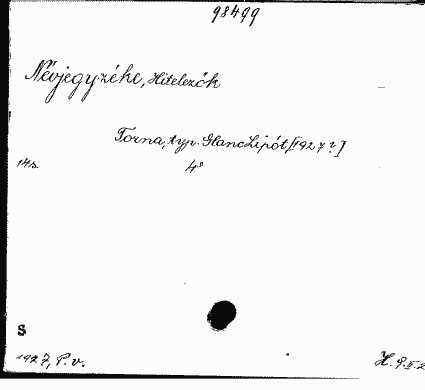 98499
Névjegyzéke, Hitelezők
Torna, typ. Glanc Lipót [1927?]
14 s. 4°
S
1927, P.v. H. 9.